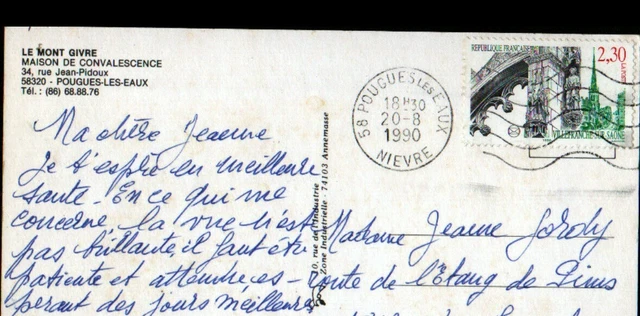 LE MONT GIVRE
MAISON DE CONVALESCENCE
34, rue Jean-Pidoux
58320 - POUGUES-LES-EAUX
Tél. : (86) 68.88.76
REPUBLIQUE FRANÇAISE
2,30
LA POSTE
VILLEFRANCHE SUR SAÔNE
58 POUGUES LES EAUX
18H30
20-8
1990
NIEVRE
Ma chère Jeanne
Je t'espère en meilleure
santé. En ce qui me
concerne, la vue n'est
pas brillante, il faut être
patiente et attendre, es-
pérant des jours meilleures
10, rue de l'Industrie
Zone Industrielle - 74103 Annemasse
Madame Jeanne
route de l'Etang de